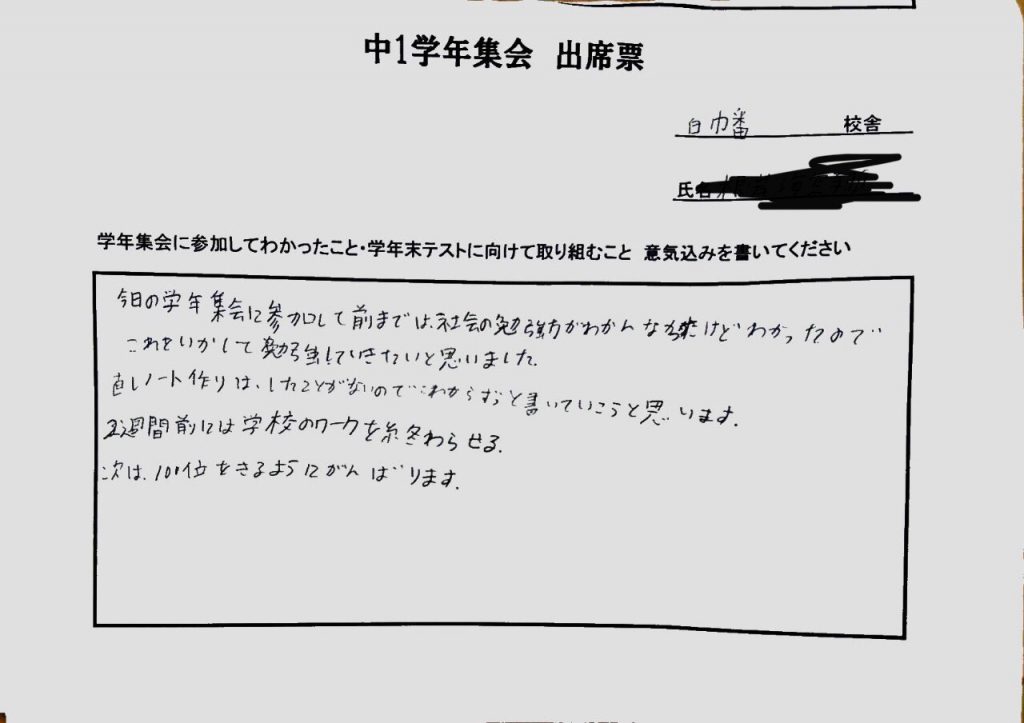 中1学年集会 出席票
白巾番 校舎
氏名
学年集会に参加してわかったこと・学年末テストに向けて取り組むこと 意気込みを書いてください
今日の学年集会に参加して前までは、社会の勉強方がわかんなかったけど わかったので
これをいかして勉強していきたいと思いました。
直しノート作りは、したことがないのでこれからずっと書いていこうと思います。
2週間前には学校のワークを終わらせる。
次は、100位をきるようにがんばります。